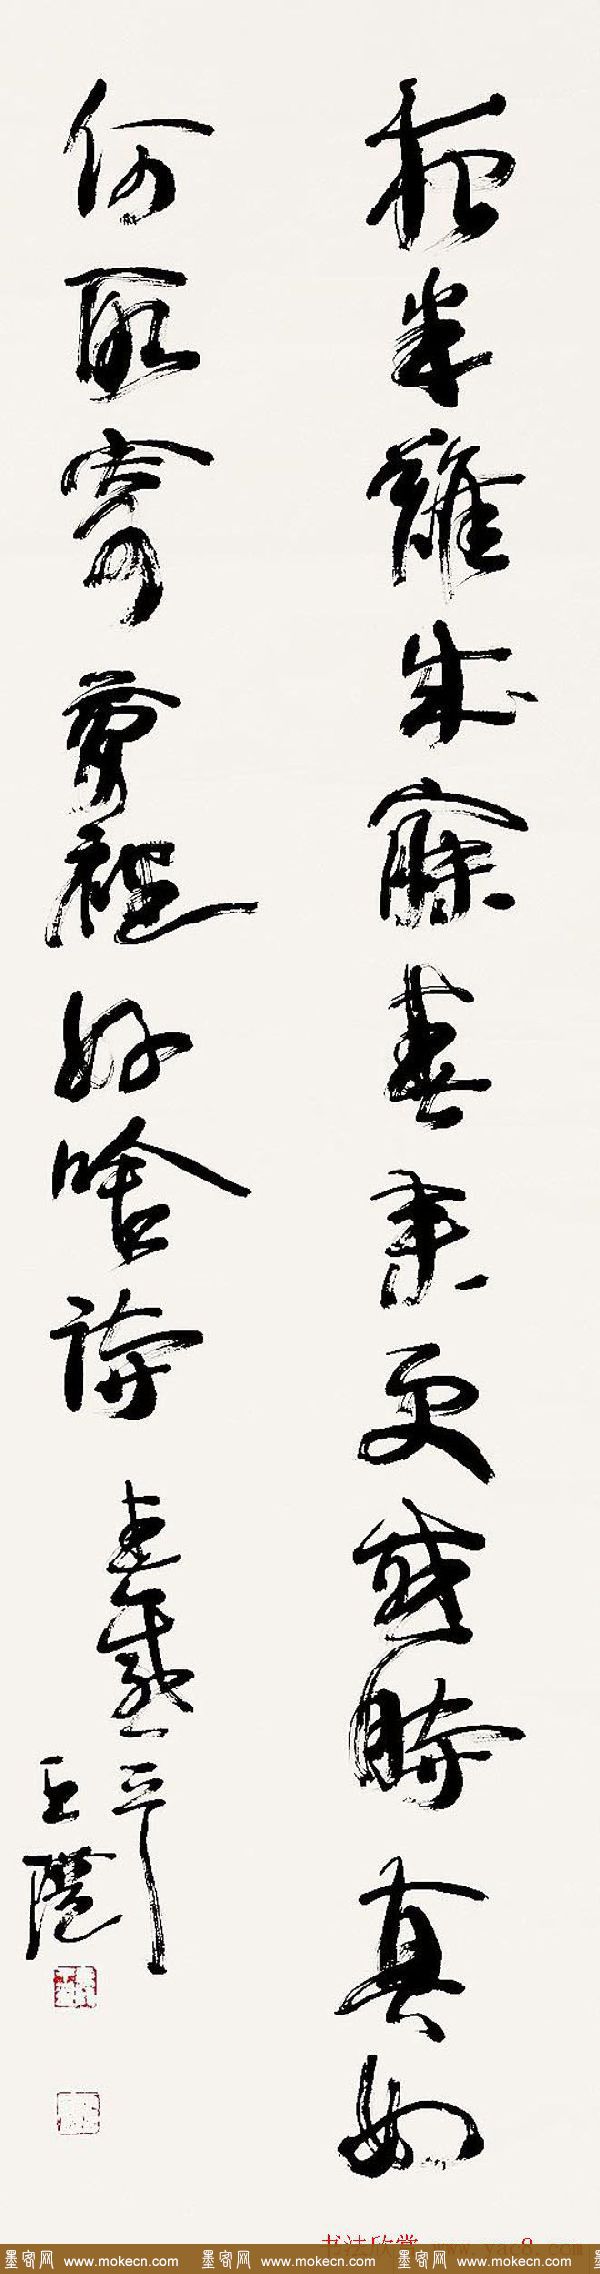 半難成寐春來更感時真如
何所寄夢裡好唅詩
书法欣赏 www.yac8.com
墨客网 www.mokecn.com 墨客网 www.mokecn.com 墨客网 www.mokecn.com